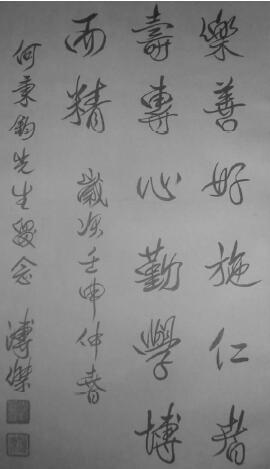 樂善好施仁者
壽專心勤學博
而精 歲次壬申仲春
何秉鈞先生愛念
溥傑